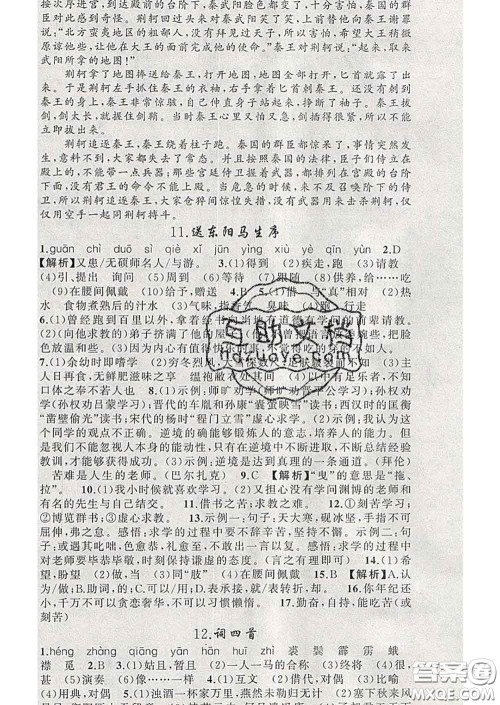 接次序进宫，到达殿前的台阶下，秦武阳脸色忽然改变，秦国的
群臣对此感到奇怪。荆轲回过头来对秦武阳笑了笑，上前向秦王谢罪
说：“北方蛮夷地区的粗鄙人，没有见过大王，所以害怕，希望大王稍微
原谅他些，让他在大王的面前完成他的使命。”秦王对荆轲说：“起来，取来
武阳所拿的地图！”
荆轲拿了地图捧送给秦王，打开地图，全部打开，匕首露了出
来。于是荆轲左手抓住秦王的衣袖，右手拿着匕首刺秦王。还
没有刺到秦王，秦王非常惊骇，自己伸直身子站起来，挣断衣袖。秦王拔
剑，剑太长，就抓住剑鞘。当时秦王心里又怕又急，剑插得很紧，所以不
能立即拔出来。
荆轲追逐秦王，秦王绕着柱子跑。秦国的君臣都惊呆了，事情突然
发生，意料不到，大家都失去常态。并且按照秦国的法律，臣子们侍立在
殿上的，不能带一点兵器；那些宫廷侍卫握着武器，都排列在宫殿的台阶
下面，没有君王的命令不能上殿。当危急的时候，来不及召唤阶下的侍
卫，所以荆轲追逐秦王，大家仓猝间惊惶失措，没有武器用来击杀荆轲，仅
仅用空手一起同荆轲搏斗。
11.送东阳马生序
1.guān chì duō sì qiè xǐ jūn yìng xiù yè qīn yùn 2.D
【解析】又患/无硕师名人/与游。 3.(1)得到 (2)疾走，跑 (3)请教
(4)引，提出 询问 (5)遇到 (6)跟从 (7)大 (8)供养，给……吃
(9)在腰间佩戴 (10)给予，赠送 4.B 5.(1)借 与“真”相对 (2)热
水 食物煮熟后的汁水 (3)气味，指香气 臭味 (4)
6.(1)曾经跑到百里以外，拿着经书向当地有道德有学问的前辈请教。
(2)向他求教的学生挤满了他的屋子，他从未把语言放委婉些，把脸
色放温和些。(3)因为内心有值得快乐的事，
7.(1)余幼时即嗜学 (2)穷冬烈风 (3)主
人日再食，无鲜肥滋味之享 缊袍敝衣处其间 (4)以中有足乐者，不知
口体之奉不若人也 8.(1)示例：师旷劝学（师旷劝晋平公学习）；孙权劝
学（孙权劝吕蒙学习）；晋代的车胤和孙康“囊萤映雪”读书；西汉时的匡衡
“凿壁偷光”读书；宋代的杨时“程门立雪”虚心求学。 (2)示例：我不认为这
个同学的观点不正确。逆境的确能够锻炼人的意志，培养人的能力。但
是我们不能忽视人的主观能动性，只有在逆境中不断进取，不断总结经验
教训，才能获得成功。 (3)示例：逆境是达到真理的一条通道。（拜伦）
苦难是人生的老师。（巴尔扎克） 9.C 【解析】“曳”的意思是“拖，
拉”。 10.(1)我小时候就喜欢学习。 (2)又担心没有学问渊博的老师和
有名的先生与自己交往。 11.借书之苦；求教之艰。 12.①刻苦学习；
②博览群书；③虚心求教。 13.示例一：句子：天大寒，砚冰坚，手指不可
屈伸，弗之怠。感悟：求学的过程中要坚持不懈。示例二：句子：或遇其
叱咄，色愈恭，礼愈至，不敢出一言以复。感悟：求学的过程中
对老师要毕恭毕敬，时刻保持谦虚的态度。（言之有理即可） 14.(1)希
望，盼望 (2)代，替 (3)当，同“肢” (4)在腰间佩戴 15.B 【解析】A.认
为/就；B.助词，的；C.可是/表示转折，但是；D.表述/送，存放。 16.你年纪还
小，千万不可以贪图休息，不可以习惯懒惰。 17.勤奋，有志向，能吃苦（或刻
苦）
12.词四首
1.héng zhàng qiāng yān hān huī zhì 裘 鬓 霹 雳 蛾
襟 觅 2.B 3.(1)姑且，暂且 (2)一人一马的合称 (3)终将 (4)很，
甚 4.(1)用典，对偶 (2)比喻 (3)对偶，用典 (4)比喻
(4)用典，对偶 5.(1)浊酒一杯家万里，燕然未勒归无计 (2)塞下秋来风